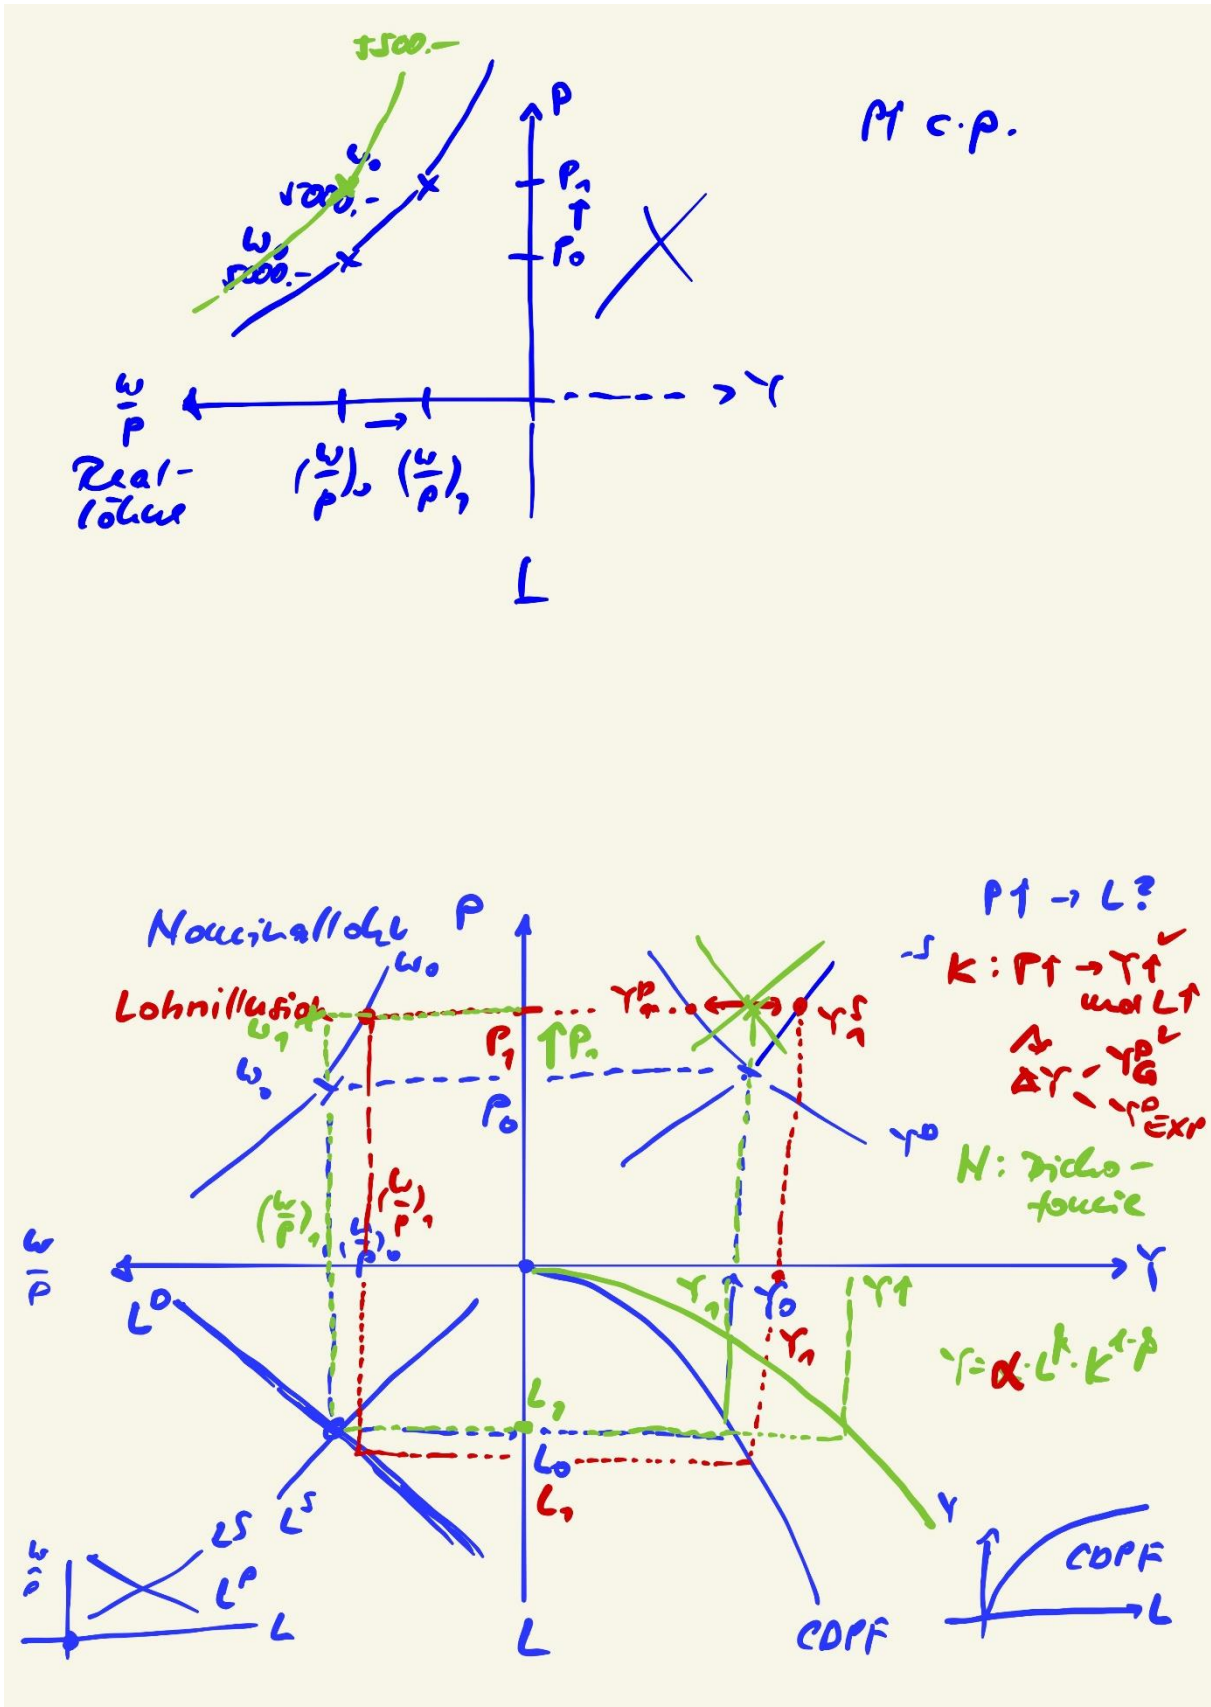 5500.-
P
P↑ c.p.
w₀
5000.-
P₁
↑
w₀
5000.-
P₀
w/p
→ Y
Real-
löhne
(w/p)₀ → (w/p)₁
L
P↑ → L?
Nominallohn
P
w₀
K: P↑ → Y↑ ✓
und L↑
Lohnillusion
w₁
P₁
↑P₁
Y₁ᴰ
Y₁ˢ
ΔY
Yᴰ_G ✓
Yᴰ_EXP
w₀
P₀
Yᴰ
N: Dicho-
tomie
(w/p)₁
(w/p)₁
(w/p)₀
w/p
Y
Lᴰ
Y₁
Y₀
Y↑
Y₁
Y=α·L^β·K^1-β
L₁
L₀
L₁
Lˢ
Y
w/p
Lˢ
Lᴰ
L
L
CDPF
CDPF
L